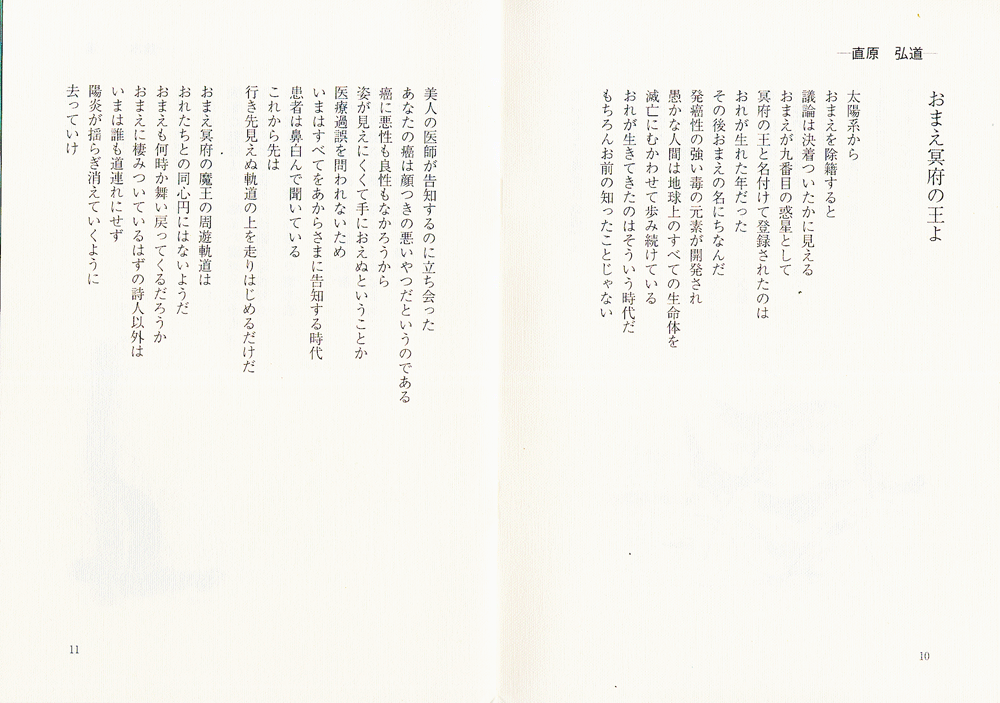 直原 弘道
おまえ冥府の王よ
太陽系から
おまえを除籍すると
議論は決着ついたかに見える
おまえが九番目の惑星として
冥府の王と名付けて登録されたのは
おれが生れた年だった
その後おまえの名にちなんだ
発癌性の強い毒の元素が開発され
愚かな人間は地球上のすべての生命体を
滅亡にむかわせて歩み続けている
おれが生きてきたのはそういう時代だ
もちろんお前の知ったことじゃない
10
美人の医師が告知するのに立ち会った
あなたの癌は顔つきの悪いやつだというのである
癌に悪性も良性もなかろうから
姿が見えにくくて手におえぬということか
医療過誤を問われないため
いまはすべてをあからさまに告知する時代
患者は鼻白んで聞いている
これから先は
行き先見えぬ軌道の上を走りはじめるだけだ
おまえ冥府の魔王の周遊軌道は
おれたちとの同心円にはないようだ
おまえも何時か舞い戻ってくるだろうか
おまえに棲みついているはずの詩人以外は
いまは誰も道連れにせず
陽炎が揺らぎ消えていくように
去っていけ
11